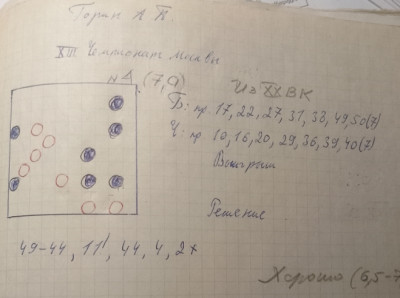 Горин А П
XIII Чемпионат Москвы
№4 (7,9)
Из XX ВК
Б: пр 17, 22, 27, 31, 38, 49, 50 (7)
Ч: пр 10, 16, 20, 29, 36, 39, 40 (7)
Выигрыш
Решение
49-44, 11, 44, 4, 2x
Хорошо (6,5-7